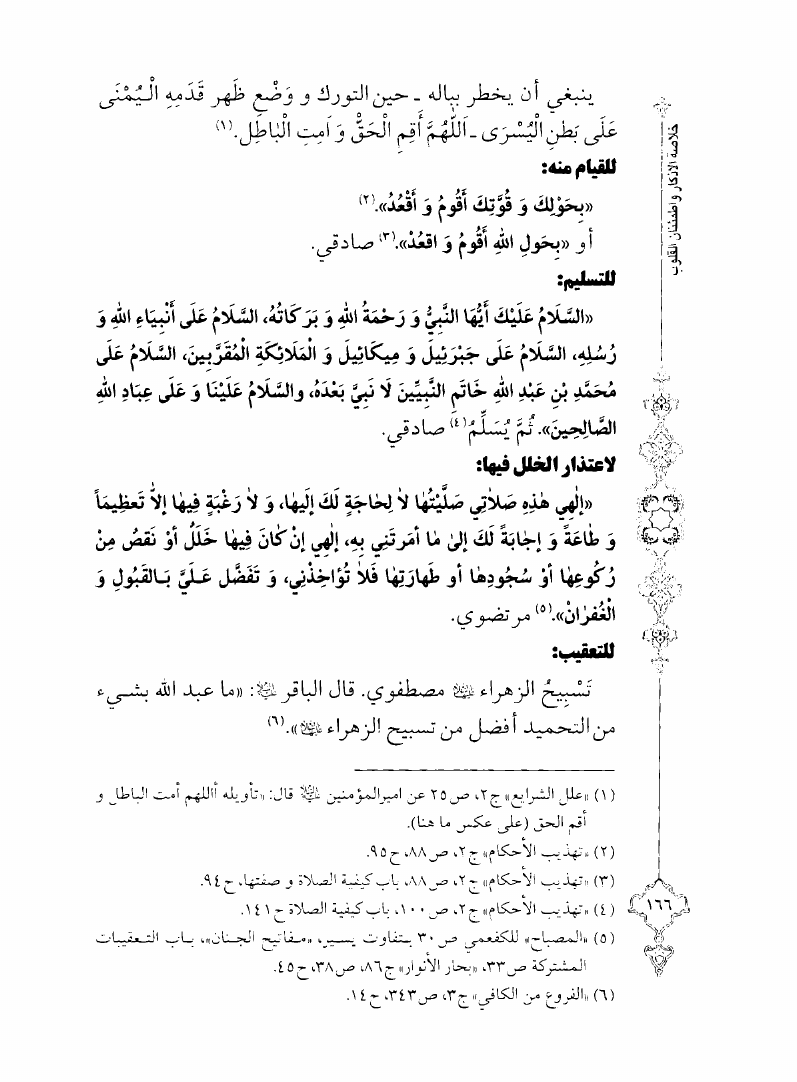 ينبغي أن يخطر بباله ـ حين التورك و وَضْعِ ظَهر قَدَمِهِ الْـيُمْنَى
عَلَى بَطنِ الْيُسْرَى ـ اَللّٰهُمَّ أَقِمِ الْحَقَّ وَ اَمِتِ الْبٰاطِل.(١)
للقيام منه:
«بِحَوْلِكَ وَ قُوَّتِكَ أَقُومُ وَ أَقْعُدُ».(٢)
أو «بِحَولِ اللهِ أَقُومُ وَ اقعُدْ».(٣) صادقي.
للتسليم:
«السَّلاَمُ عَلَيْكَ أَيُّهَا النَّبِيُّ وَ رَحْمَةُ اللهِ وَ بَرَكَاتُهُ، السَّلاَمُ عَلَى أَنْبِيَاءِ اللهِ وَ
رُسُلِهِ، السَّلاَمُ عَلَى جَبْرَئِيلَ وَ مِيكَائِيلَ وَ الْمَلاَئِكَةِ الْمُقَرَّبِينَ، السَّلاَمُ عَلَى
مُحَمَّدِ بْنِ عَبْدِ اللهِ خَاتَمِ النَّبِيِّينَ لاَ نَبِيَّ بَعْدَهُ، والسَّلاَمُ عَلَيْنَا وَ عَلَى عِبَادِ اللهِ
الصَّالِحِينَ». ثُمَّ يُسَلِّمُ(٤) صادقي.
لاعتذار الخلل فيها:
«إِلٰهِي هٰذِهِ صَلاٰتِي صَلَّيْتُهٰا لاٰ لِحٰاجَةٍ لَكَ إِلَيهٰا، وَ لاٰ رَغْبَةٍ فِيهٰا إِلاّٰ تَعظِيمَاً
وَ طٰاعَةً وَ إِجٰابَةً لَكَ إِلىٰ مٰا أمَرتَنِي بِهِ، إِلٰهِي إنْ كٰانَ فِيهٰا خَلَلٌ أوْ نَقصٌ مِنْ
رُكُوعِهٰا أوْ سُجُودِهٰا أو طَهٰارَتِهٰا فَلاٰ تُؤاخِذْنِي، وَ تَفَضَّل عَـلَيَّ بَـالقَبُولِ وَ
الْغُفرٰانْ».(٥) مرتضوي.
للتعقيب:
تَسْبِيحُ الزهراء ﷷ مصطفوي. قال الباقر ﷷ: «ما عبد الله بشـيء
من التحميد أفضل من تسبيح الزهراء ﷷ».(٦)
(١) «علل الشرايع» ج٢، ص٢٥ عن اميرالمؤمنين ﷷ قال: «تأويله أاللهم أمت الباطل و
أقم الحق (على عكس ما هنا).
(٢) «تهذيب الأحكام» ج٢، ص٨٨، ح٩٥.
(٣) «تهذيب الأحكام» ج٢، ص٨٨، باب كيفية الصلاة و صفتها، ح٩٤.
(٤) «تهذيب الأحكام» ج٢، ص١٠٠، باب كيفية الصلاة ح١٤١.
(٥) «المصباح» للكفعمي ص٣٠ بتفاوت يسير، «مـفاتيح الجـنان»، بـاب التـعقيبات
المشتركة ص٣٣، «بحار الأنوار» ج٨٦، ص٣٨، ح٤٥.
(٦) «الفروع من الكافي» ج٣، ص٣٤٣، ح١٤.
خلاصة الاذكار واطمئنان القلوب
١٦٦